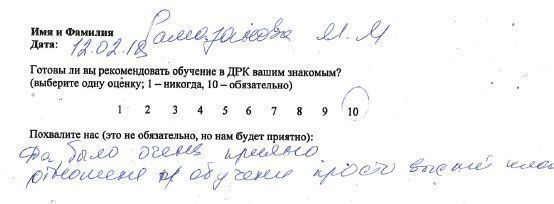 Имя и Фамилия Рамазанова М. М
Дата: 12.02.18
Готовы ли вы рекомендовать обучение в ДРК вашим знакомым?
(выберите одну оценку; 1 – никогда, 10 – обязательно)
1 2 3 4 5 6 7 8 9 10
Похвалите нас (это не обязательно, но нам будет приятно):
Да, было очень приятно
обучение просто высший клас